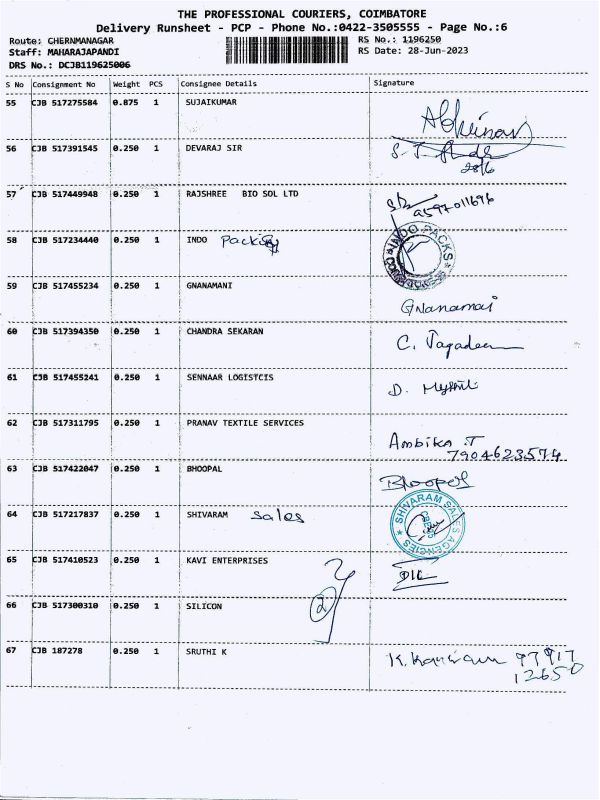 THE PROFESSIONAL COURIERS, COIMBATORE
Delivery Runsheet - PCP - Phone No.:0422-3505555 - Page No.:6
Route: CHERNMANAGAR RS No.: 1196250
Staff: MAHARAJAPANDI RS Date: 28-Jun-2023
DRS No.: DCJB119625006
S No Consignment No Weight PCS Consignee Details Signature
55 CJB 517275584 0.875 1 SUJAIKUMAR
Abhinav
56 CJB 517391545 0.250 1 DEVARAJ SIR
28/6
57 CJB 517449948 0.250 1 RAJSHREE BIO SOL LTD
58 CJB 517234440 0.250 1 INDO Packing
INDO PACKS
59 CJB 517455234 0.250 1 GNANAMANI
Gnanamai
60 CJB 517394350 0.250 1 CHANDRA SEKARAN
C. Jagadee
61 CJB 517455241 0.250 1 SENNAAR LOGISTCIS
D.
62 CJB 517311795 0.250 1 PRANAV TEXTILE SERVICES
Ambika .T
7904623574
63 CJB 517422047 0.250 1 BHOOPAL
Bhoopal
64 CJB 517217837 0.250 1 SHIVARAM Sales
SHIVARAM SALES AGENCIES
65 CJB 517410523 0.250 1 KAVI ENTERPRISES
66 CJB 517300310 0.250 1 SILICON
2
67 CJB 187278 0.250 1 SRUTHI K
K. 97917
12650